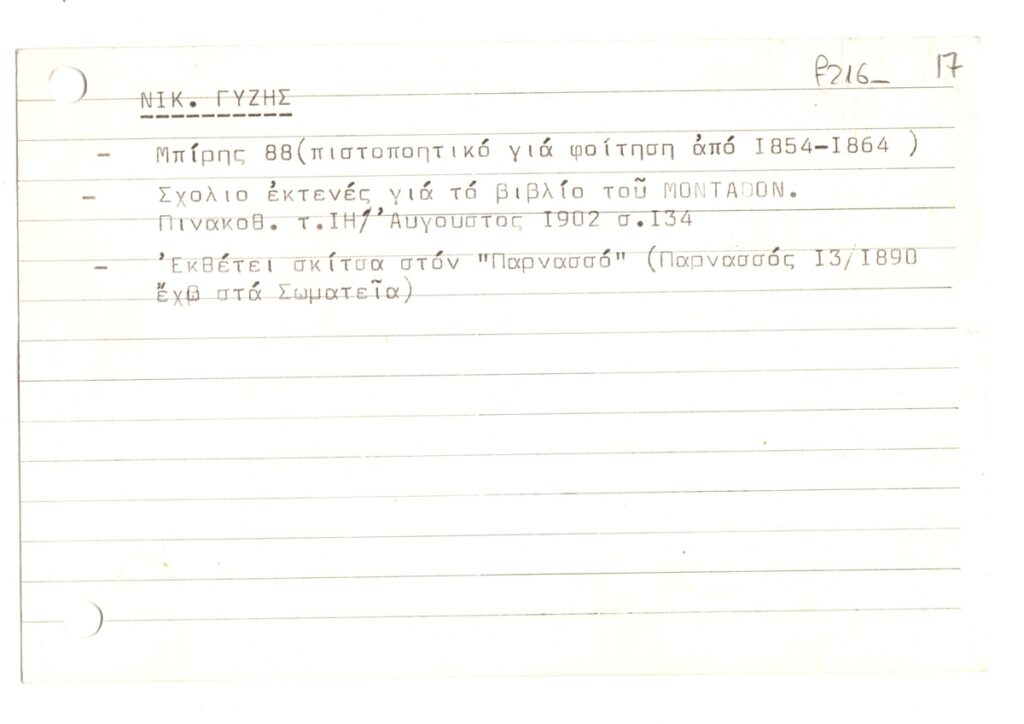 P216_ 17
ΝΙΚ. ΓΥΖΗΣ
- Μπίρης 88(πιστοποητικό γιά φοίτηση ἀπό Ι854-Ι864 )
- Σχολιο ἐκτενές γιά τό βιβλίο τοῦ MONTADON.
Πινακοθ. τ.ΙΗ/'Αυγουστος Ι902 σ.Ι34
- 'Εκθέτει σκίτσα στόν "Παρνασσό" (Παρνασσός Ι3/Ι890
ἔχω στά Σωματεῖα)